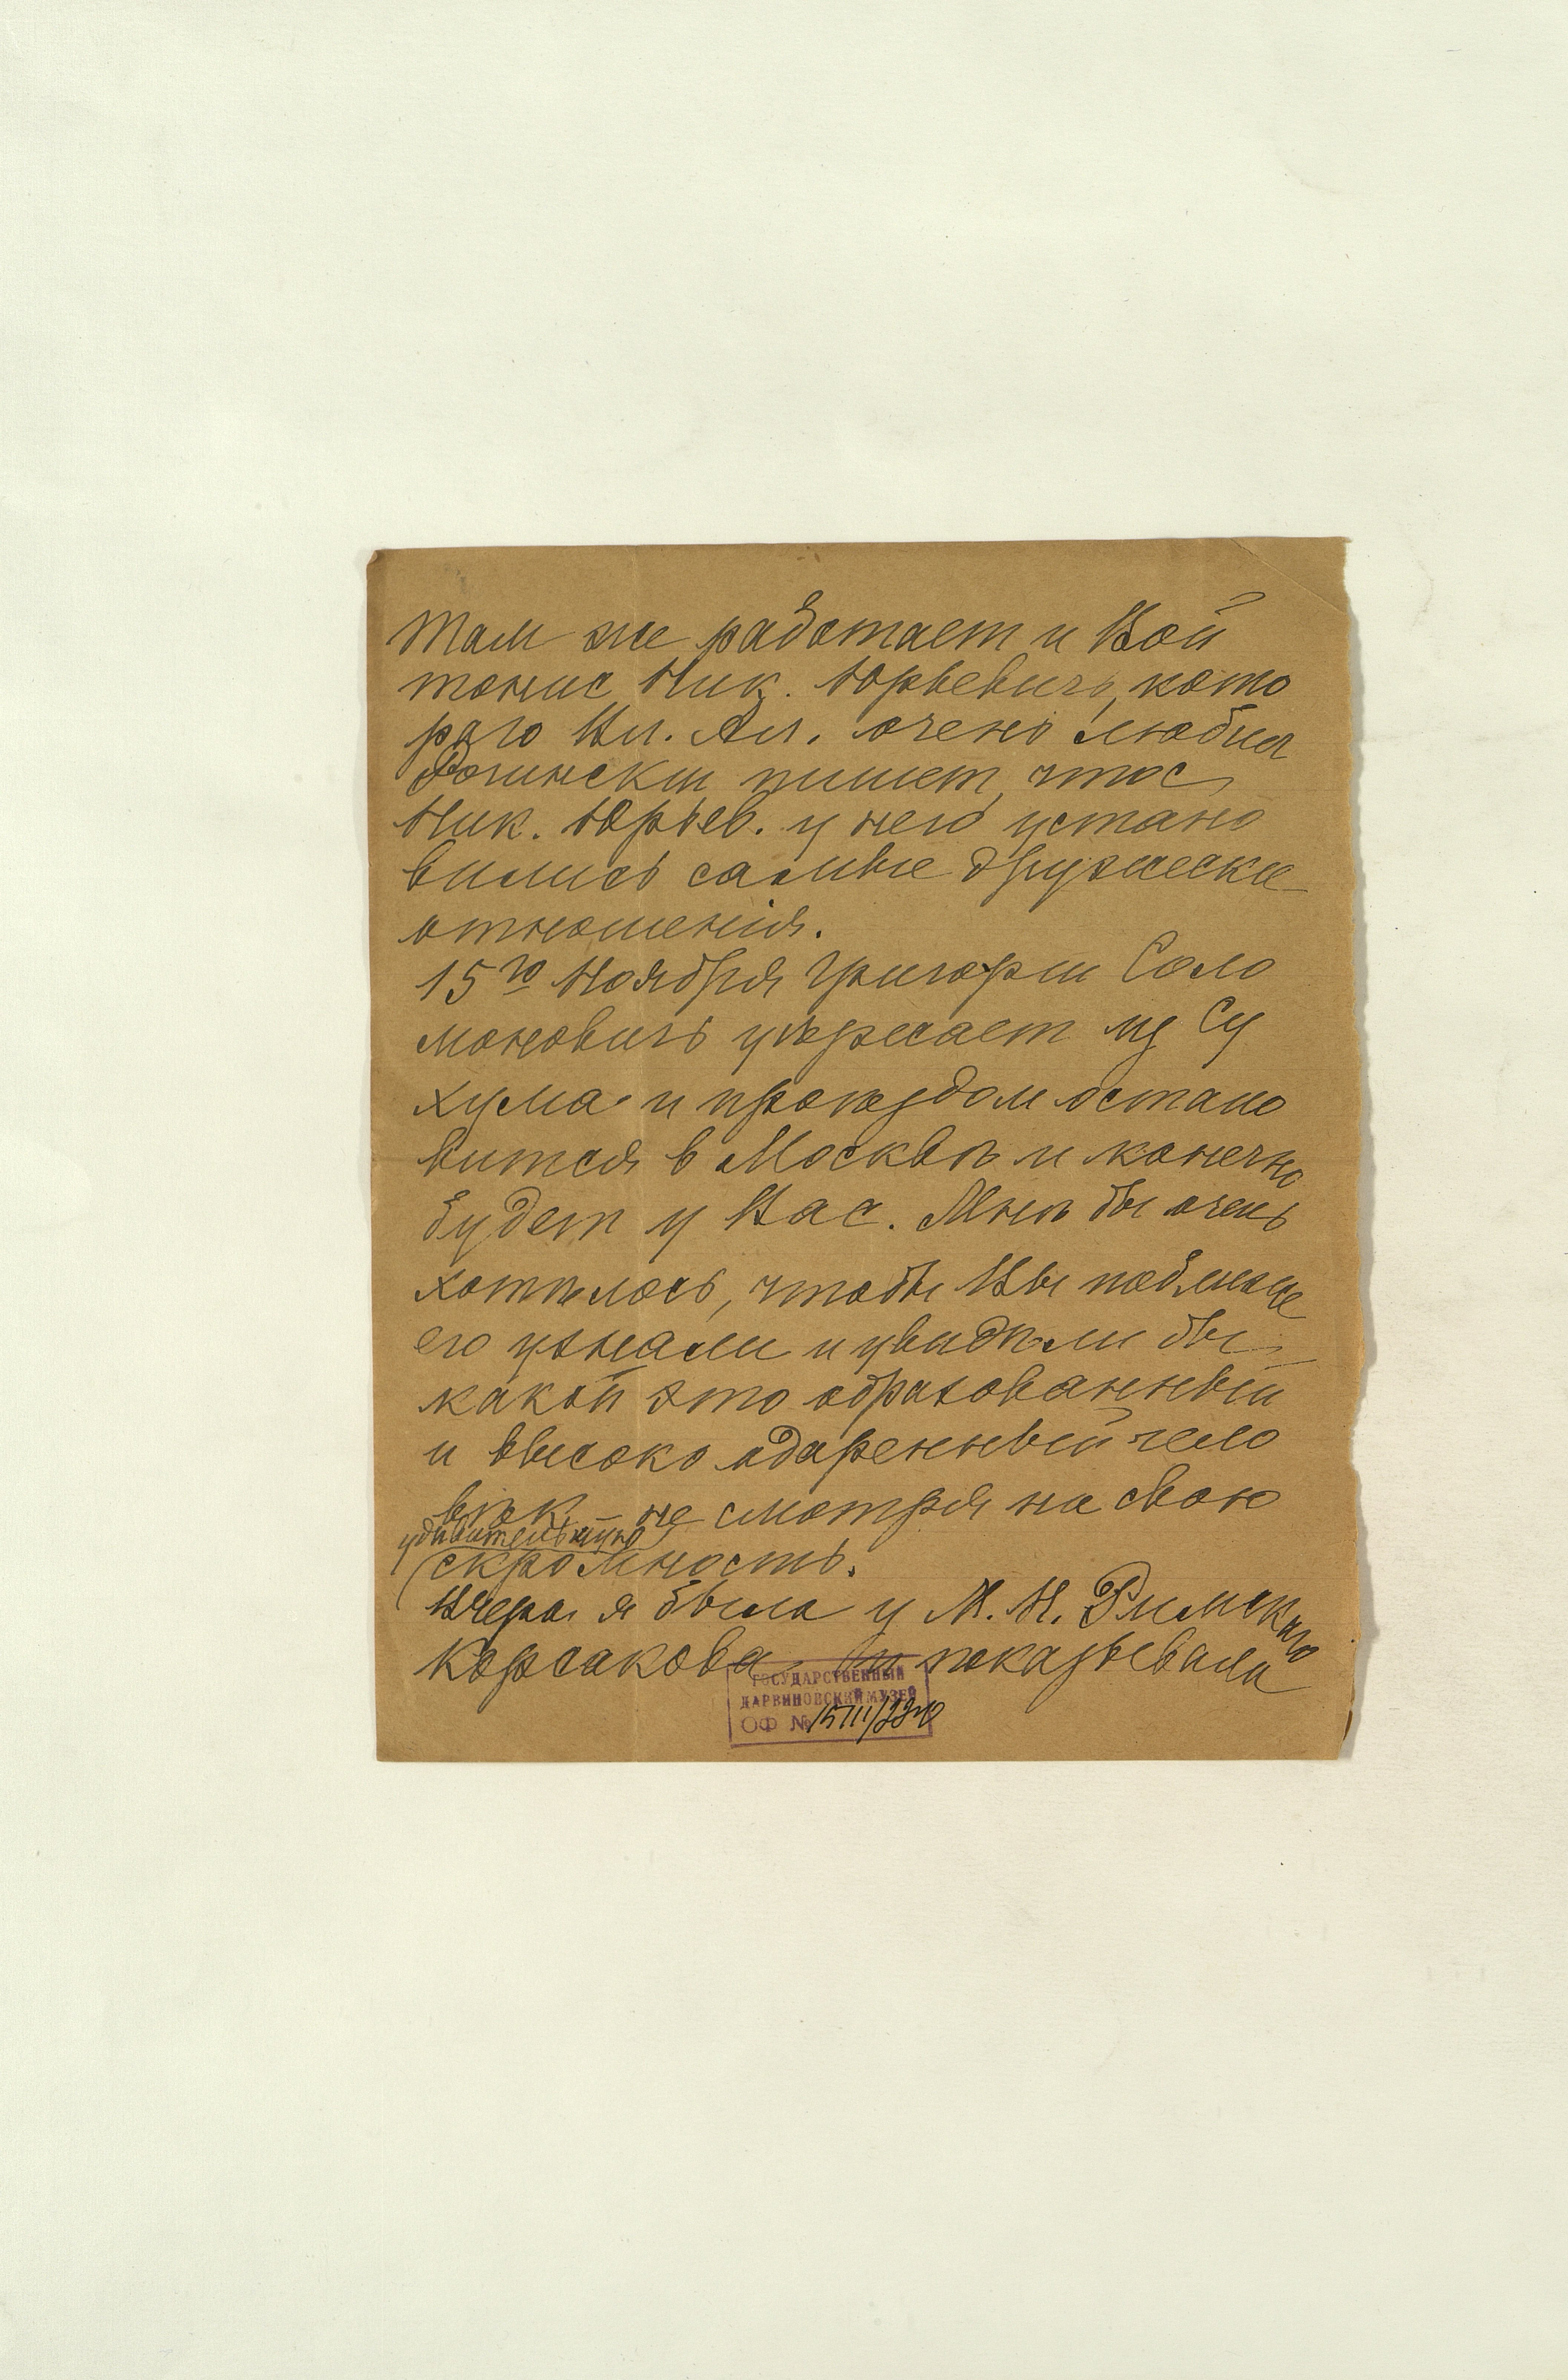 Там же работает и Вой
тонис Ник. Юрьевичъ, кото
раго Вл. Ал. очень любил
Рогински пишет, что с
Ник. Юрьев. у него устано
вились самые дружески
отношенія.
15го Ноября Григори Соло
моновичъ уѣзжает из Су
хума и проѣздом остано
вится в Москвѣ и конечно
будет у Вас. Мнѣ бы очень
хотѣлось, чтобы Вы поближе
его узнали и увидѣли бы
какой это образованный
и высоко одаренный чело
вѣк не смотря на свою
удивительную
скромность.
Вчера я была у М. Н. Римскаго
Корсакова показывали
ГОСУДАРСТВЕННЫЙ
ДАРВИНОВСКИЙ МУЗЕЙ
ОФ №